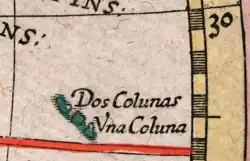 INS:
NS:
30
Dos Colunas
Vna Coluna